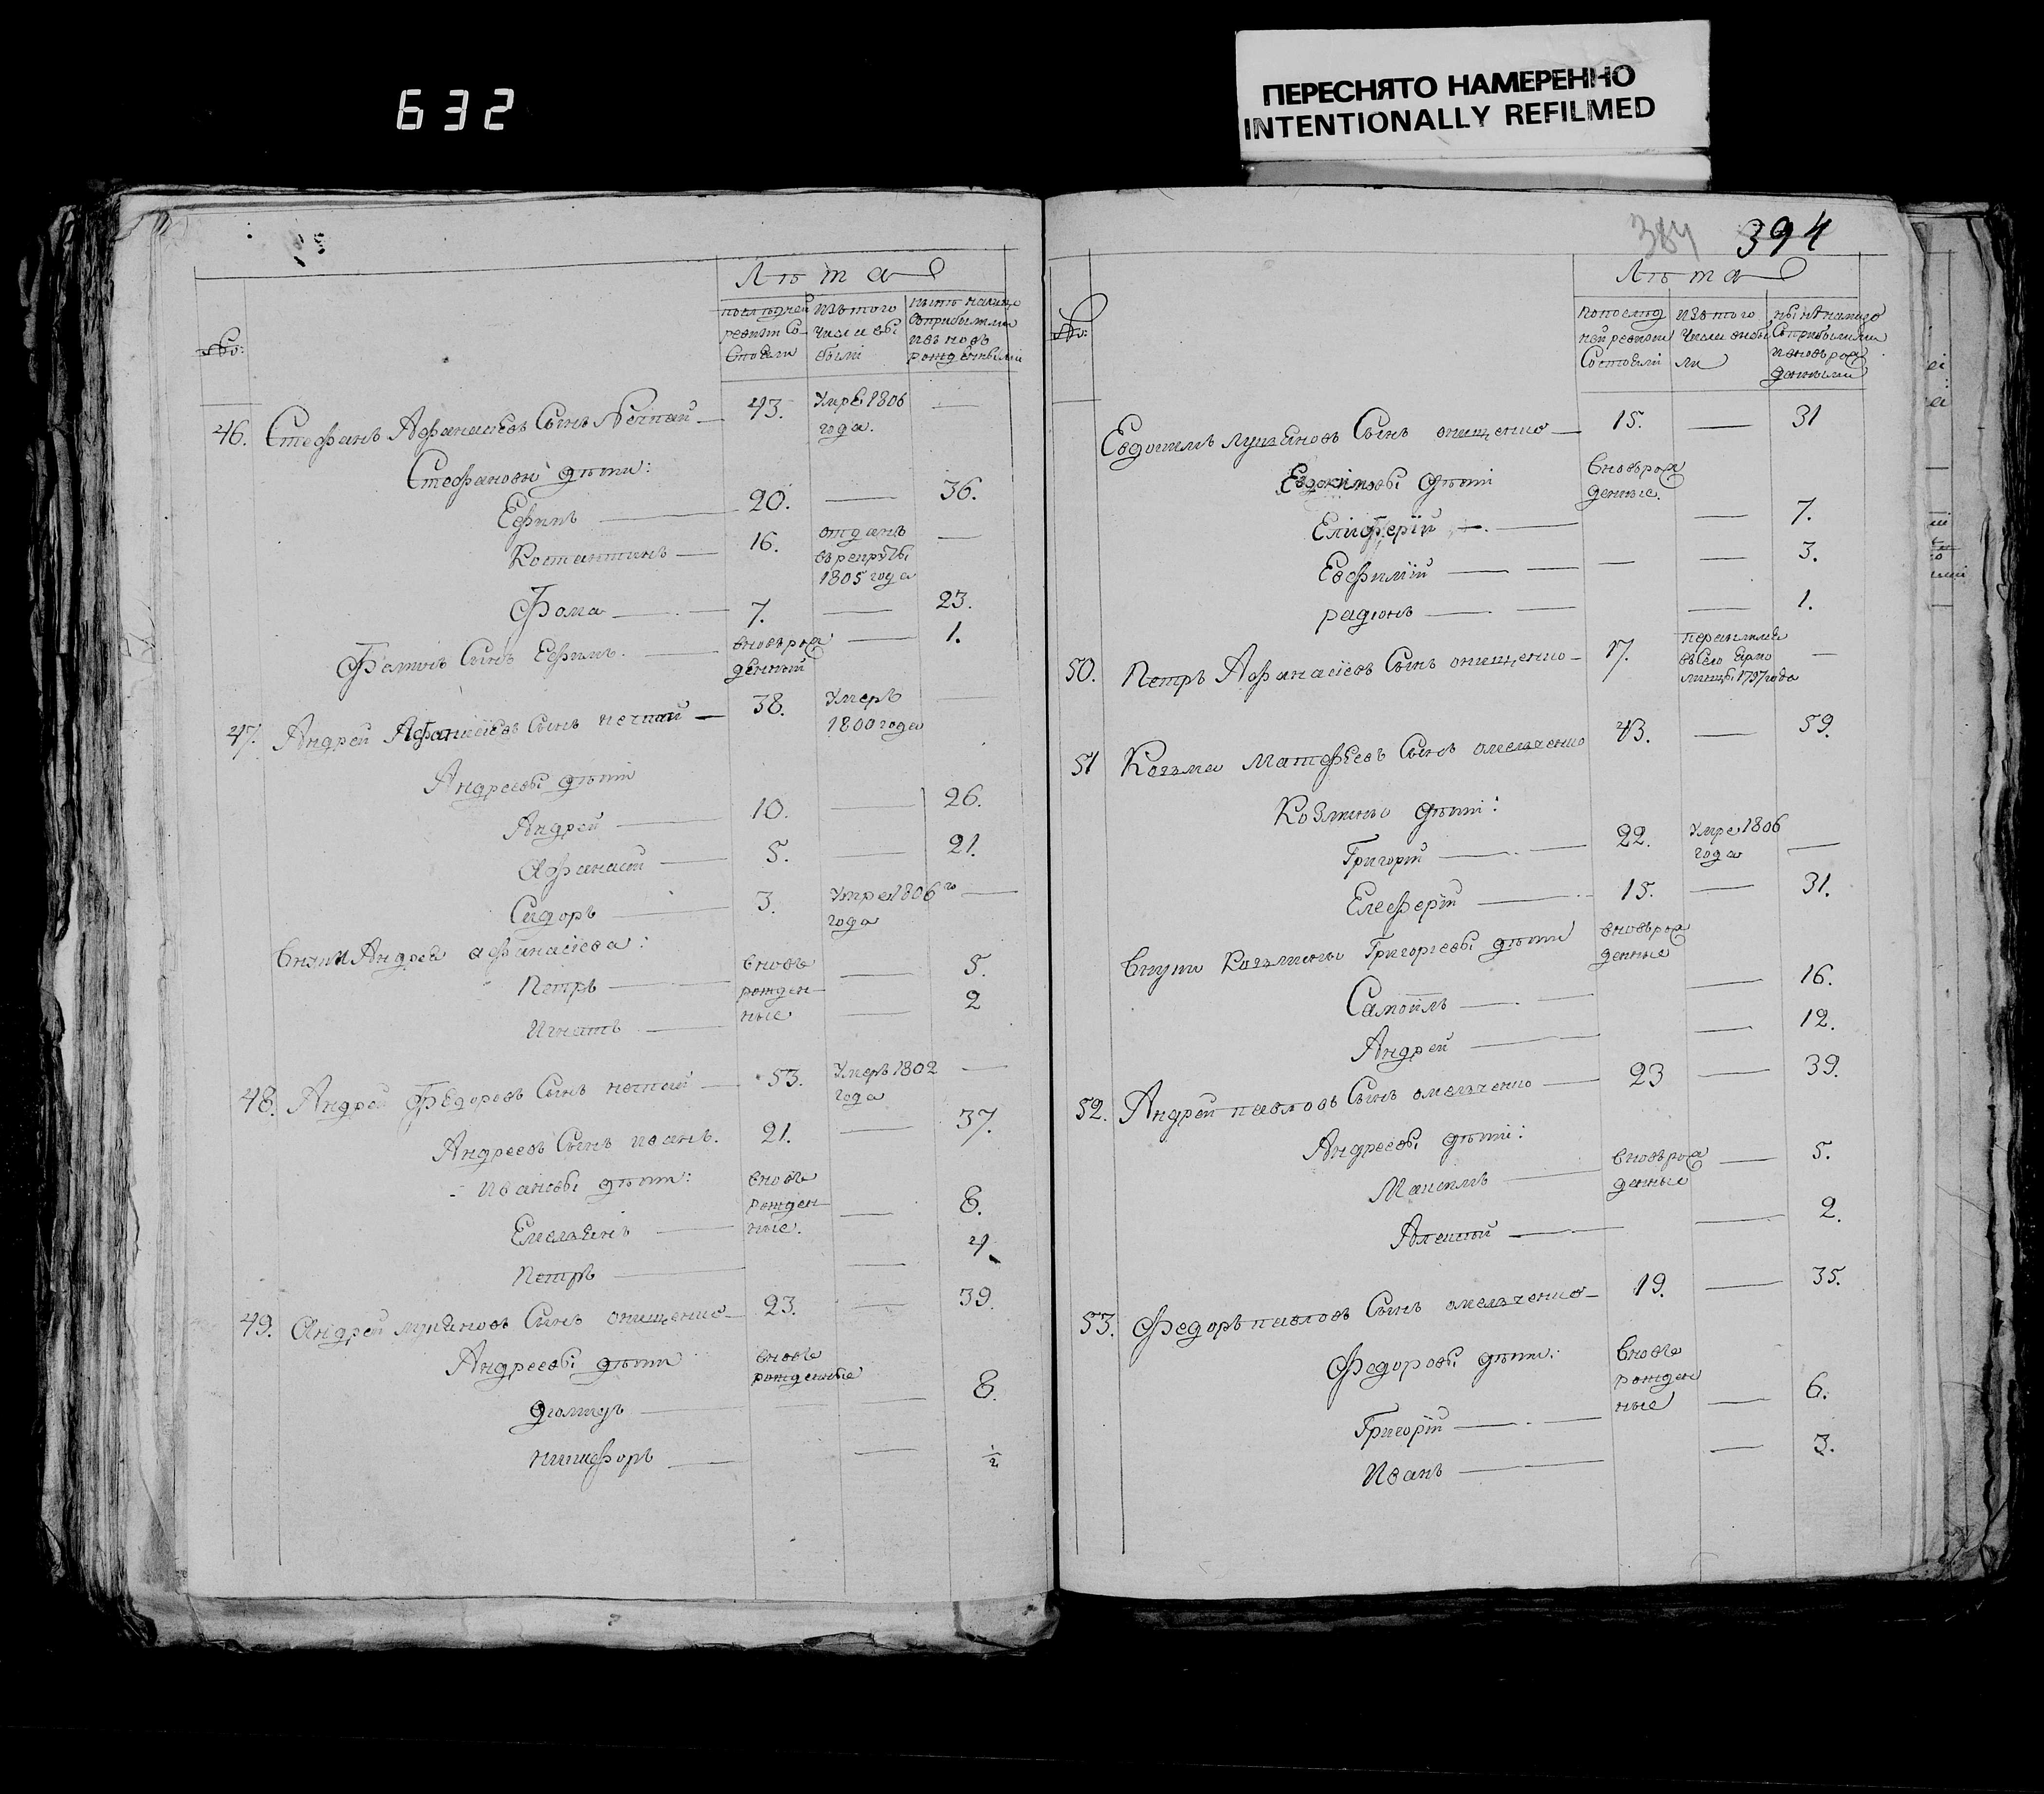 632
ПЕРЕСНЯТО НАМЕРЕННО
INTENTIONALLY REFILMED
384 394
Лѣта
№:
последней ревизи состояли
изъ того числа выбыли
нынѣ налицо съ прибылыми и вновь рожденными
46. Стефанъ Афанасиевъ Сынъ Нечпай 43. Умре 1806 года. —
Стефановы дѣти:
Ефимъ 20. — 36.
Костантинъ 16. отданъ в рекруты 1805 года —
Фома 7. — 23.
Сынъ Ефимъ. вновь рожденный — 1.
47. Андрей Афанасиевъ Сынъ нечпай 38. Умеръ 1800 года —
Андреевы дѣти
Андрей 10. — 26.
Афанасий 5. — 21.
Сидоръ 3. Умре 1806го года —
Внуки Андрея афанасиева:
Петръ вновь рожденные — 5.
Игнатъ — 2
48. Андрей Федоровъ Сынъ нечпай 53. Умеръ 1802 года —
Андреевъ Сынъ иванъ. 21. — 37.
Ивановы дѣти: вновь рожденные.
Емельянъ — 8.
Петръ — 4
49. Андрей лукяновъ Сынъ онищенко 23. — 39.
Андреевы дѣти вновь рожденные
диомидъ — 8.
никифоръ — ½
Лѣта
№:
по последней ревизи Состояли
изъ того числа выбыли
нынѣ налицо Съ прибылими и вновь рожденными
Евдокимъ лукяновъ Сынъ онищенко 15. — 31
Евдокимовы дѣти вновь рожденные.
Еліферій — 7.
Евфимій — — 3.
радионъ — 1.
50. Петръ Афанасиевъ Сынъ онищенко 17. въ Село 1797 года —
51 Козьма Матфеевъ Сынъ омельченко 43. — 59.
Козмины дѣти:
Григорій 22. Умре 1806 года —
Елеферій 15. — 31.
Внуки Козьмины Григориевы дѣти вновь рожденные
Самойлъ — 16.
Андрей — 12.
52. Андрей павловъ Сынъ омельченко 23 — 39.
Андреевы дѣти:
Максимъ вновь рожденные — 5.
Алексей — 2.
53. Федоръ павловъ Сынъ омельченко 19. — 35.
Федоровы дѣти: вновь рожденные
Григорій — 6.
Иванъ — 3.